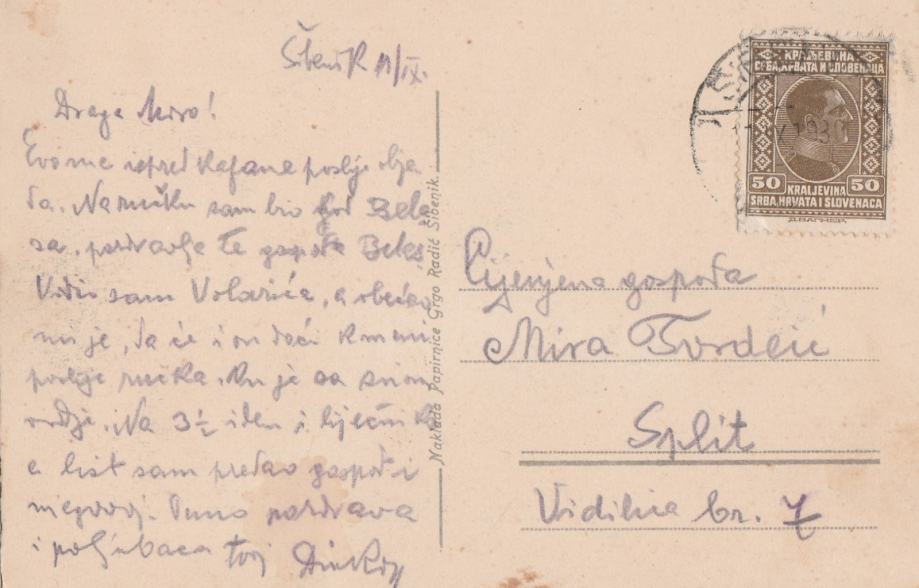 Šibenik 11/IX.
Draga Miro!
Evo me ispred kafana poslije obje
da. Na ručku sam bio kod Bele
sa, pozdravlja te gospođa Beles.
Vidio sam Volarića, a obećao
mi je, da će i on doći k meni
poslije ručka. On je sa svom
ovdje. Na 3½ idem i liječniku
a list sam predao gospođi
njegovoj. Puno pozdrava
i poljubaca tvoj Dinko
Naklada Papirnice Grgo Radić Šibenik.
КРАЉЕВИНА
СРБА, ХРВАТА И СЛОВЕНАЦА
50 KRALJEVINA 50
SRBA, HRVATA I SLOVENACA
Cijenjena gospođa
Mira Tvrdeić
Split
Vidilica br. 7